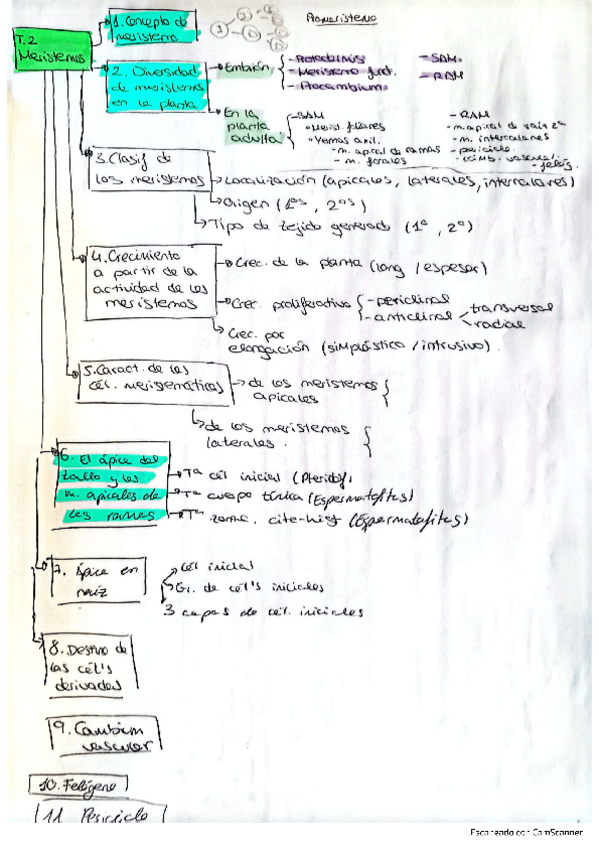 T.2
Meristemos
1. Concepto de
meristemo
1
2
2
Promeristemo
2. Diversidad
de meristemos
en la planta
Embrión
- Protodermis
- Meristemo fund.
- Procambium
- SAM
- RAM
En la
planta
adulta
- SAM
- Merist. foliares
- Yemas axil.
- m. apical de ramas
- m. florales
- RAM
- m. apical de raíz 2ª
- m. intercalares
- periciclo
- cámb. vascular
- felóg.
3. Clasif de
los meristemos
Localización (apicales, laterales, intercalares)
Origen (1os, 2os)
Tipo de tejido generado (1º, 2º)
4. Crecimiento
a partir de la
actividad de los
meristemos
Crec. de la planta (long / espesor)
Crec. proliferativo
- periclinal
- anticlinal
transversal
radial
Crec. por
elongación (simplástico / intrusivo).
5. Caract. de las
cél. meristemáticas
de los meristemos
apicales
de los meristemos
laterales.
6. El ápice del
tallo y los
m. apicales de
las ramas
Tª cél inicial (Pteridof.)
Tª cuerpo túnica (Espermatofitas)
Tª zonac. cito-hist (Espermatofitas)
7. Ápice en
raíz
cél inicial
Gr. de cél's iniciales
3 capas de cél. iniciales
8. Destino de
las cél's
derivadas
9. Cambium
vascular
10. Felógeno
11. Periciclo
Escaneado con CamScanner